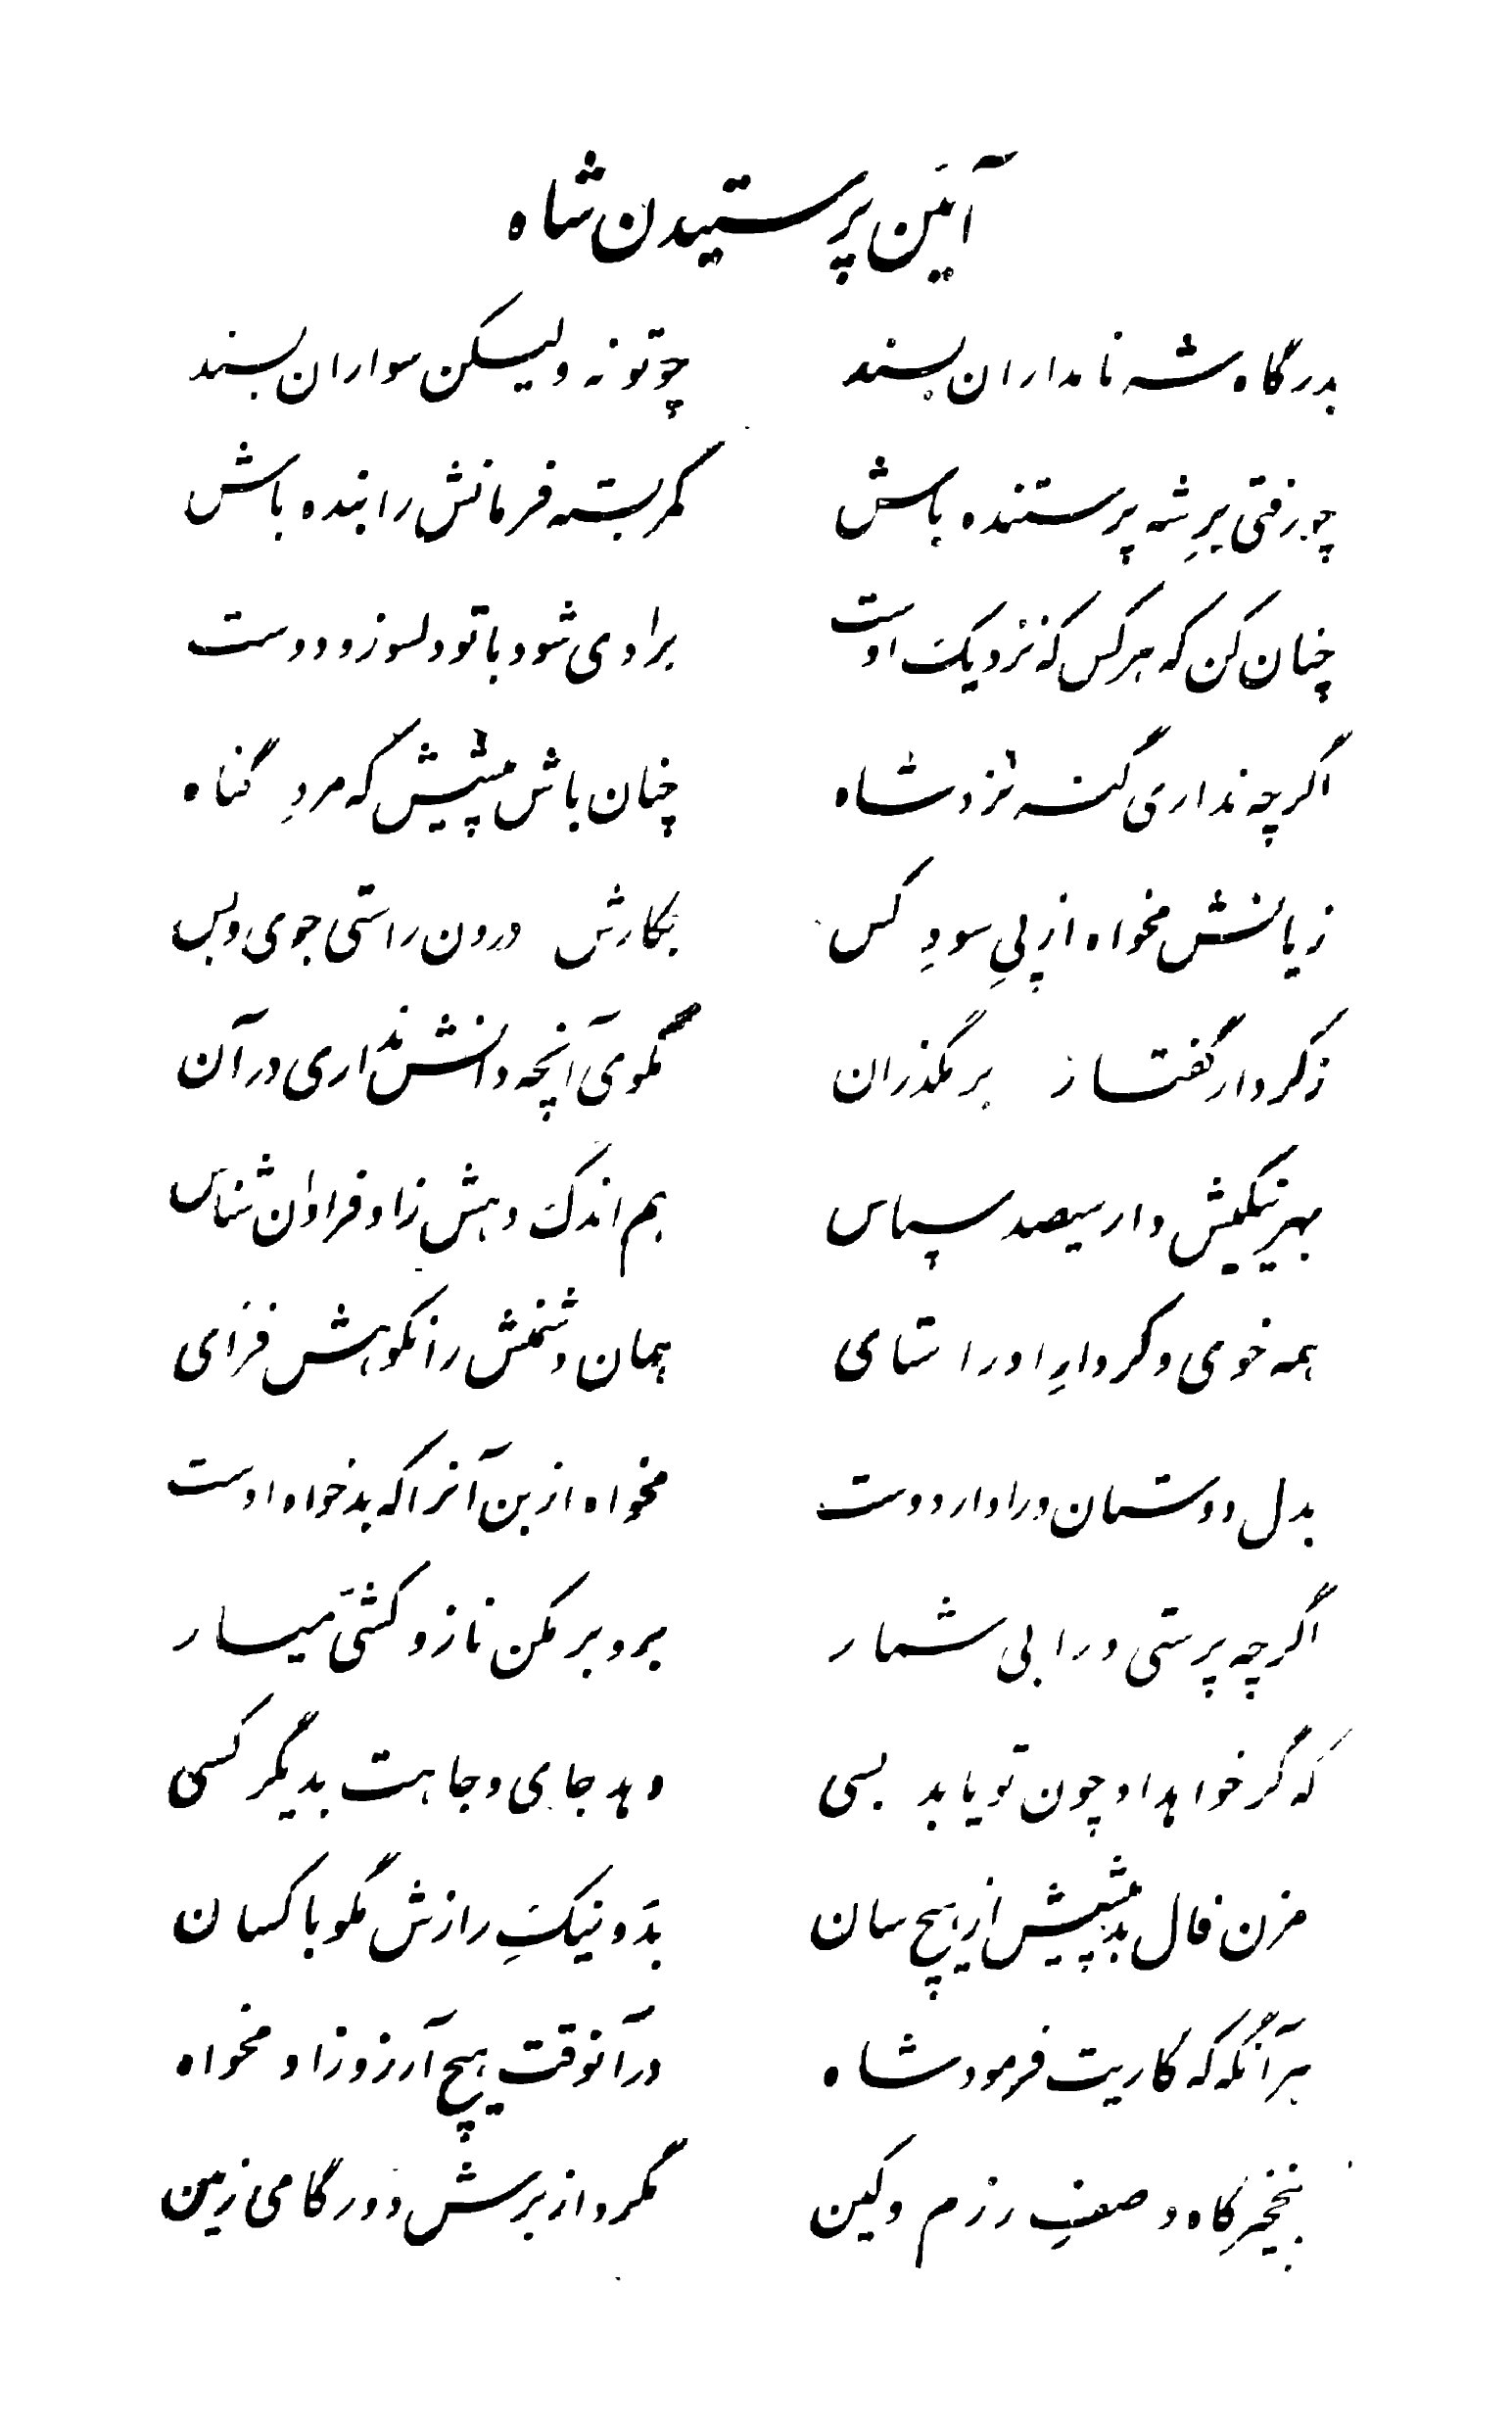 آیین پرستیدن شاه
بدرگاه شه نامداران بسند چو تو نه ولیکن سواران بسند
چو رفتی برِ شه پرستنده باش کمر بسته فرمانش را بنده باش
چنان کن که هر کس که نزدیک اوست براوی شود با تو دلسوز و دوست
اگر چه نداری گنه نزد شاه چنان باش پیشش که مردِ گناه
زیانش مخواه از پیِ سودِ کس بکارش درون راستی جوی و بس
ز کردار گفتار بر مگذران مگوی آنچه دانش نداری در آن
بهر نیکیش دار سیصد سپاس هم اندک دهش زاو فراوان شناس
همه خوی و کردارِ او را ستای همان دشمنش را نکوهش فزای
بدل دوستان ورا دار دوست مخواه از بن آنرا که بدخواه اوست
اگر چه پرستی ورا بی شمار برو بر مکن ناز و کشّی میار
که گر خواهد او چون تو یابد بسی دهد جای و جاهت بدیگر کسی
مزن فال بد پیشش از هیچ سان بد و نیکِ رازش مگو با کسان
هر آنگه که کاریت فرمود شاه در آنوقت هیچ آرزو زاو مخواه
بنخچیرگاه و صفِ رزم و کین مگرد از برش دور گامی زمین